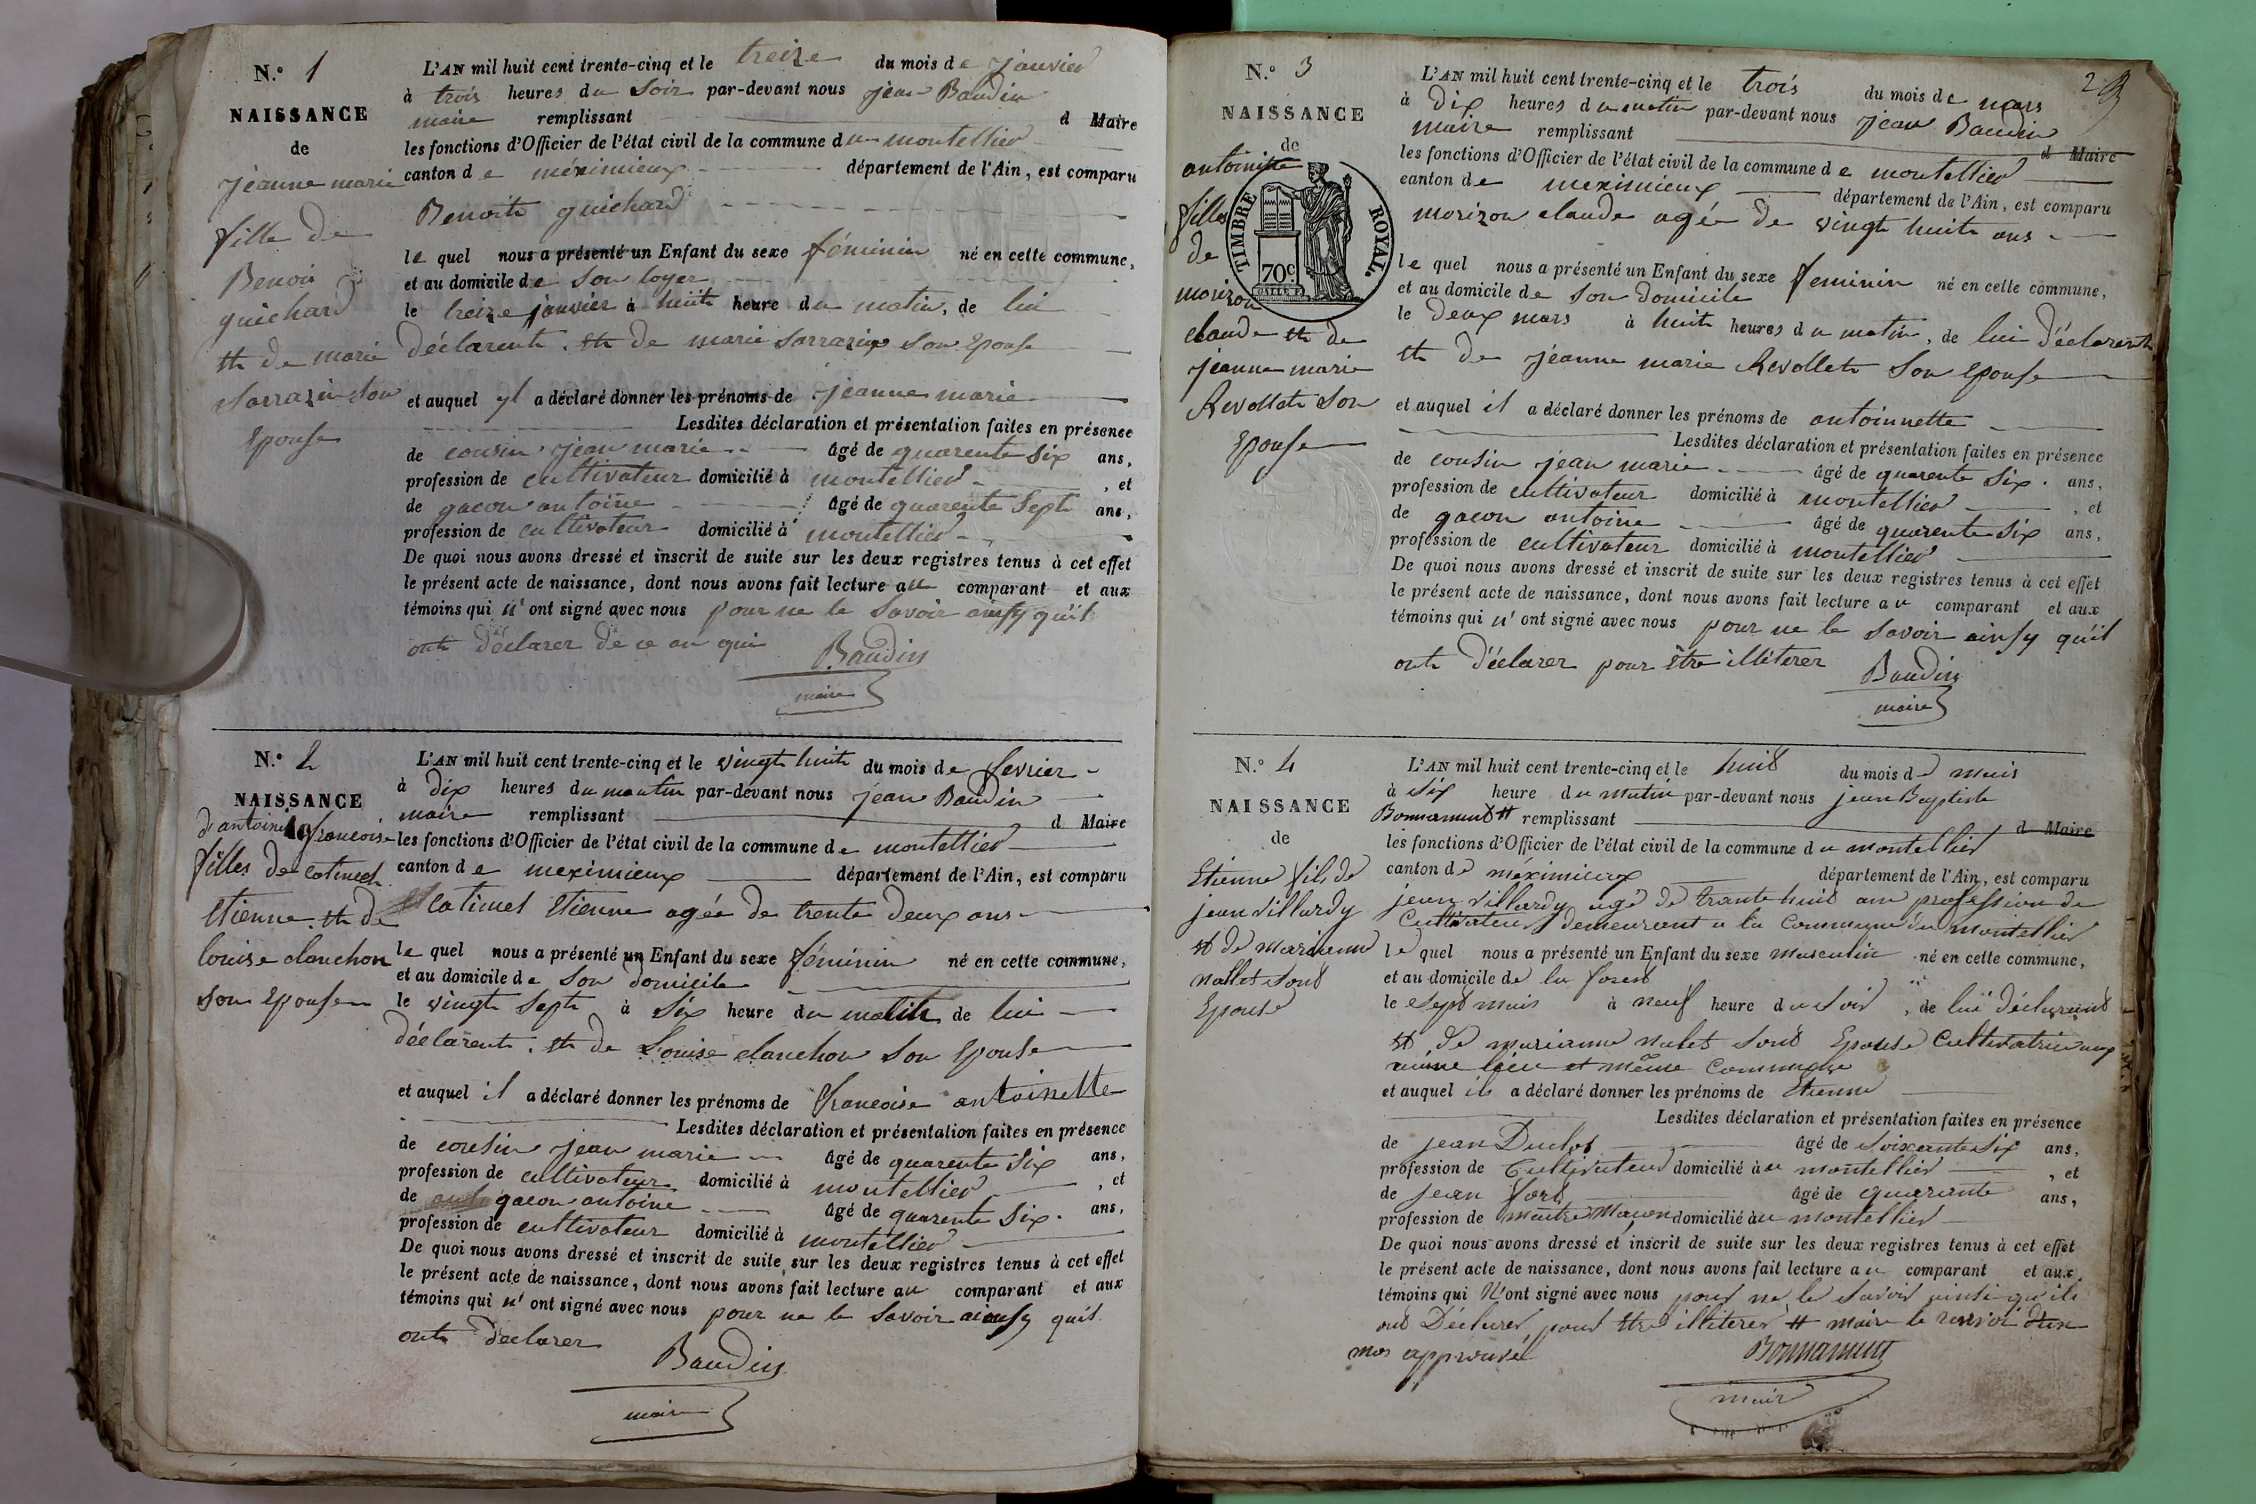 N.° 1
NAISSANCE
de
jeanne marie
fille de
Benoit
guichard
et de marie
Sarrazin son
Epouse
L'AN mil huit cent trente-cinq et le treize du mois de janvier
à trois heures du soir par-devant nous jean Baudin
maire remplissant d Maire
les fonctions d'Officier de l'état civil de la commune du montellier
canton de méximieux département de l'Ain, est comparu
Benoit guichard
le quel nous a présenté un Enfant du sexe féminin né en cette commune,
et au domicile de son loyer
le treize janvier à huit heure du matin, de lui
déclarent. et de marie Sarrazin son Epouse
et auquel yl a déclaré donner les prénoms de jeanne marie
Lesdites déclaration et présentation faites en présence
de cousin jean marie âgé de quarente six ans,
profession de cultivateur domicilié à montellier, et
de gacon antoine âgé de quarente sept ans,
profession de cultivateur domicilié à montellier
De quoi nous avons dressé et inscrit de suite sur les deux registres tenus à cet effet
le présent acte de naissance, dont nous avons fait lecture au comparant et aux
témoins qui n' ont signé avec nous pour ne le savoir ainsy qu'il
ont déclarer de ce en qui
Baudin
maire
N.° 2
NAISSANCE
d'antoinette francoise
filles de catimel
Etienne et de
louise clanchon
son Epouse
L'AN mil huit cent trente-cinq et le vingt huit du mois de fevrier
à dix heures du mautin par-devant nous jean Baudin
maire remplissant d Maire
les fonctions d'Officier de l'état civil de la commune de montellier
canton de meximieux département de l'Ain, est comparu
Catimel Etienne agée de trente deux ans
le quel nous a présenté un Enfant du sexe féminin né en cette commune,
et au domicile de son domicile
le vingt sept à six heure du matin de lui
déclarent. et de Louise clanchon son Epouse
et auquel il a déclaré donner les prénoms de francoise antoinette
Lesdites déclaration et présentation faites en présence
de cousin jean marie âgé de quarente six ans,
profession de cultivateur domicilié à montellier, et
de gacon antoine âgé de quarente six. ans,
profession de cultivateur domicilié à montellier
De quoi nous avons dressé et inscrit de suite sur les deux registres tenus à cet effet
le présent acte de naissance, dont nous avons fait lecture au comparant et aux
témoins qui n' ont signé avec nous pour ne le savoir ainsy qu'il
ont declarer
Baudin
maire
2
N.° 3
NAISSANCE
de
antoinette
fille
de
morizon
claude et de
jeanne marie
Revollet son
Epouse
TIMBRE ROYAL.
70c
L'AN mil huit cent trente-cinq et le trois du mois de mars
à dix heures du matin par-devant nous jean Baudin
maire remplissant d Maire
les fonctions d'Officier de l'état civil de la commune de montellier
canton de meximieux département de l'Ain, est comparu
morizon claude agée de vingt huit ans
le quel nous a présenté un Enfant du sexe feminin né en cette commune,
et au domicile de son domicile
le deux mars à huit heures du matin, de lui déclarent
et de jeanne marie Revollet son Epouse
et auquel il a déclaré donner les prénoms de antoinnette
Lesdites déclaration et présentation faites en présence
de cousin jean marie âgé de quarente six. ans,
profession de cultivateur domicilié à montellier, et
de gacon antoine âgé de quarente six ans,
profession de cultivateur domicilié à montellier
De quoi nous avons dressé et inscrit de suite sur les deux registres tenus à cet effet
le présent acte de naissance, dont nous avons fait lecture au comparant et aux
témoins qui n' ont signé avec nous pour ne le savoir ainsy qu'il
ont déclarer pour être illiterer
Baudin
maire
N.° 4
NAISSANCE
de
Etienne fils de
jean Villardy
et de marianne
Nallet sont
Epouse
L'AN mil huit cent trente-cinq et le huit du mois de mais
à six heure du matin par-devant nous jean Baptiste
Bonnamour remplissant d Maire
les fonctions d'Officier de l'état civil de la commune du montellier
canton de méximieux département de l'Ain, est comparu
jean Villardy agé de trante huit an profession de
Cultivateur demeurant a la Commune du montellier
le quel nous a présenté un Enfant du sexe masculin né en cette commune,
et au domicile de la
le sept mais à neuf heure du soir, de lui déclarant
et de marianne nalet sont Epouse Cultivatrice aux
même lieu et même Commune
et auquel ils a déclaré donner les prénoms de Etienne
Lesdites déclaration et présentation faites en présence
de jean Duclos âgé de Soixante six ans,
profession de Cultivateur domicilié au montellier, et
de jean âgé de quarante ans,
profession de maitre Macon domicilié au montellier
De quoi nous avons dressé et inscrit de suite sur les deux registres tenus à cet effet
le présent acte de naissance, dont nous avons fait lecture au comparant et aux
témoins qui N'ont signé avec nous pour ne le savoir ainsi qu'ils
ont Déclarer pour etre illiterer et maire le renvoi d'un
mos approuvé
Bonnamour
mair